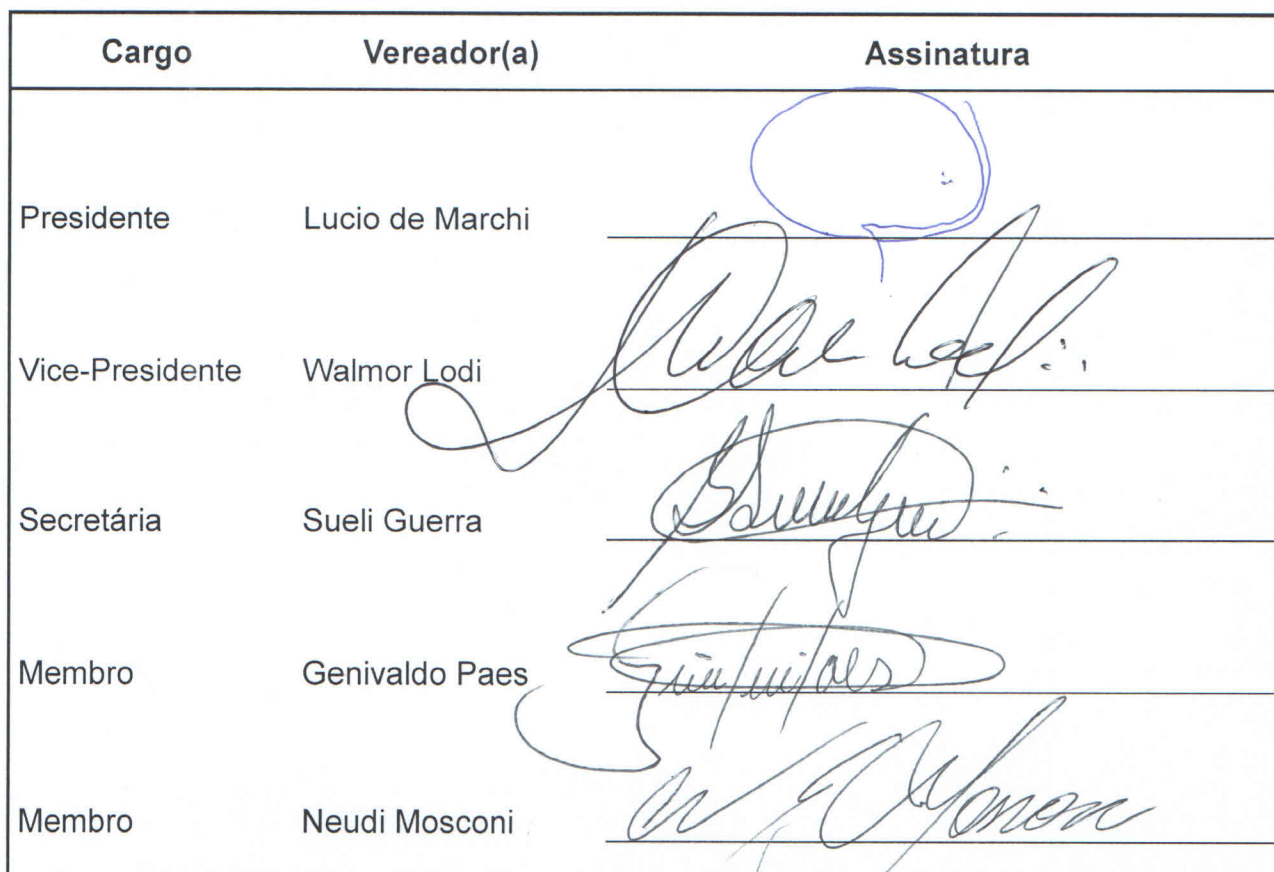 Cargo Vereador(a) Assinatura
Presidente Lucio de Marchi
Vice-Presidente Walmor Lodi
Secretária Sueli Guerra
Membro Genivaldo Paes
Membro Neudi Mosconi